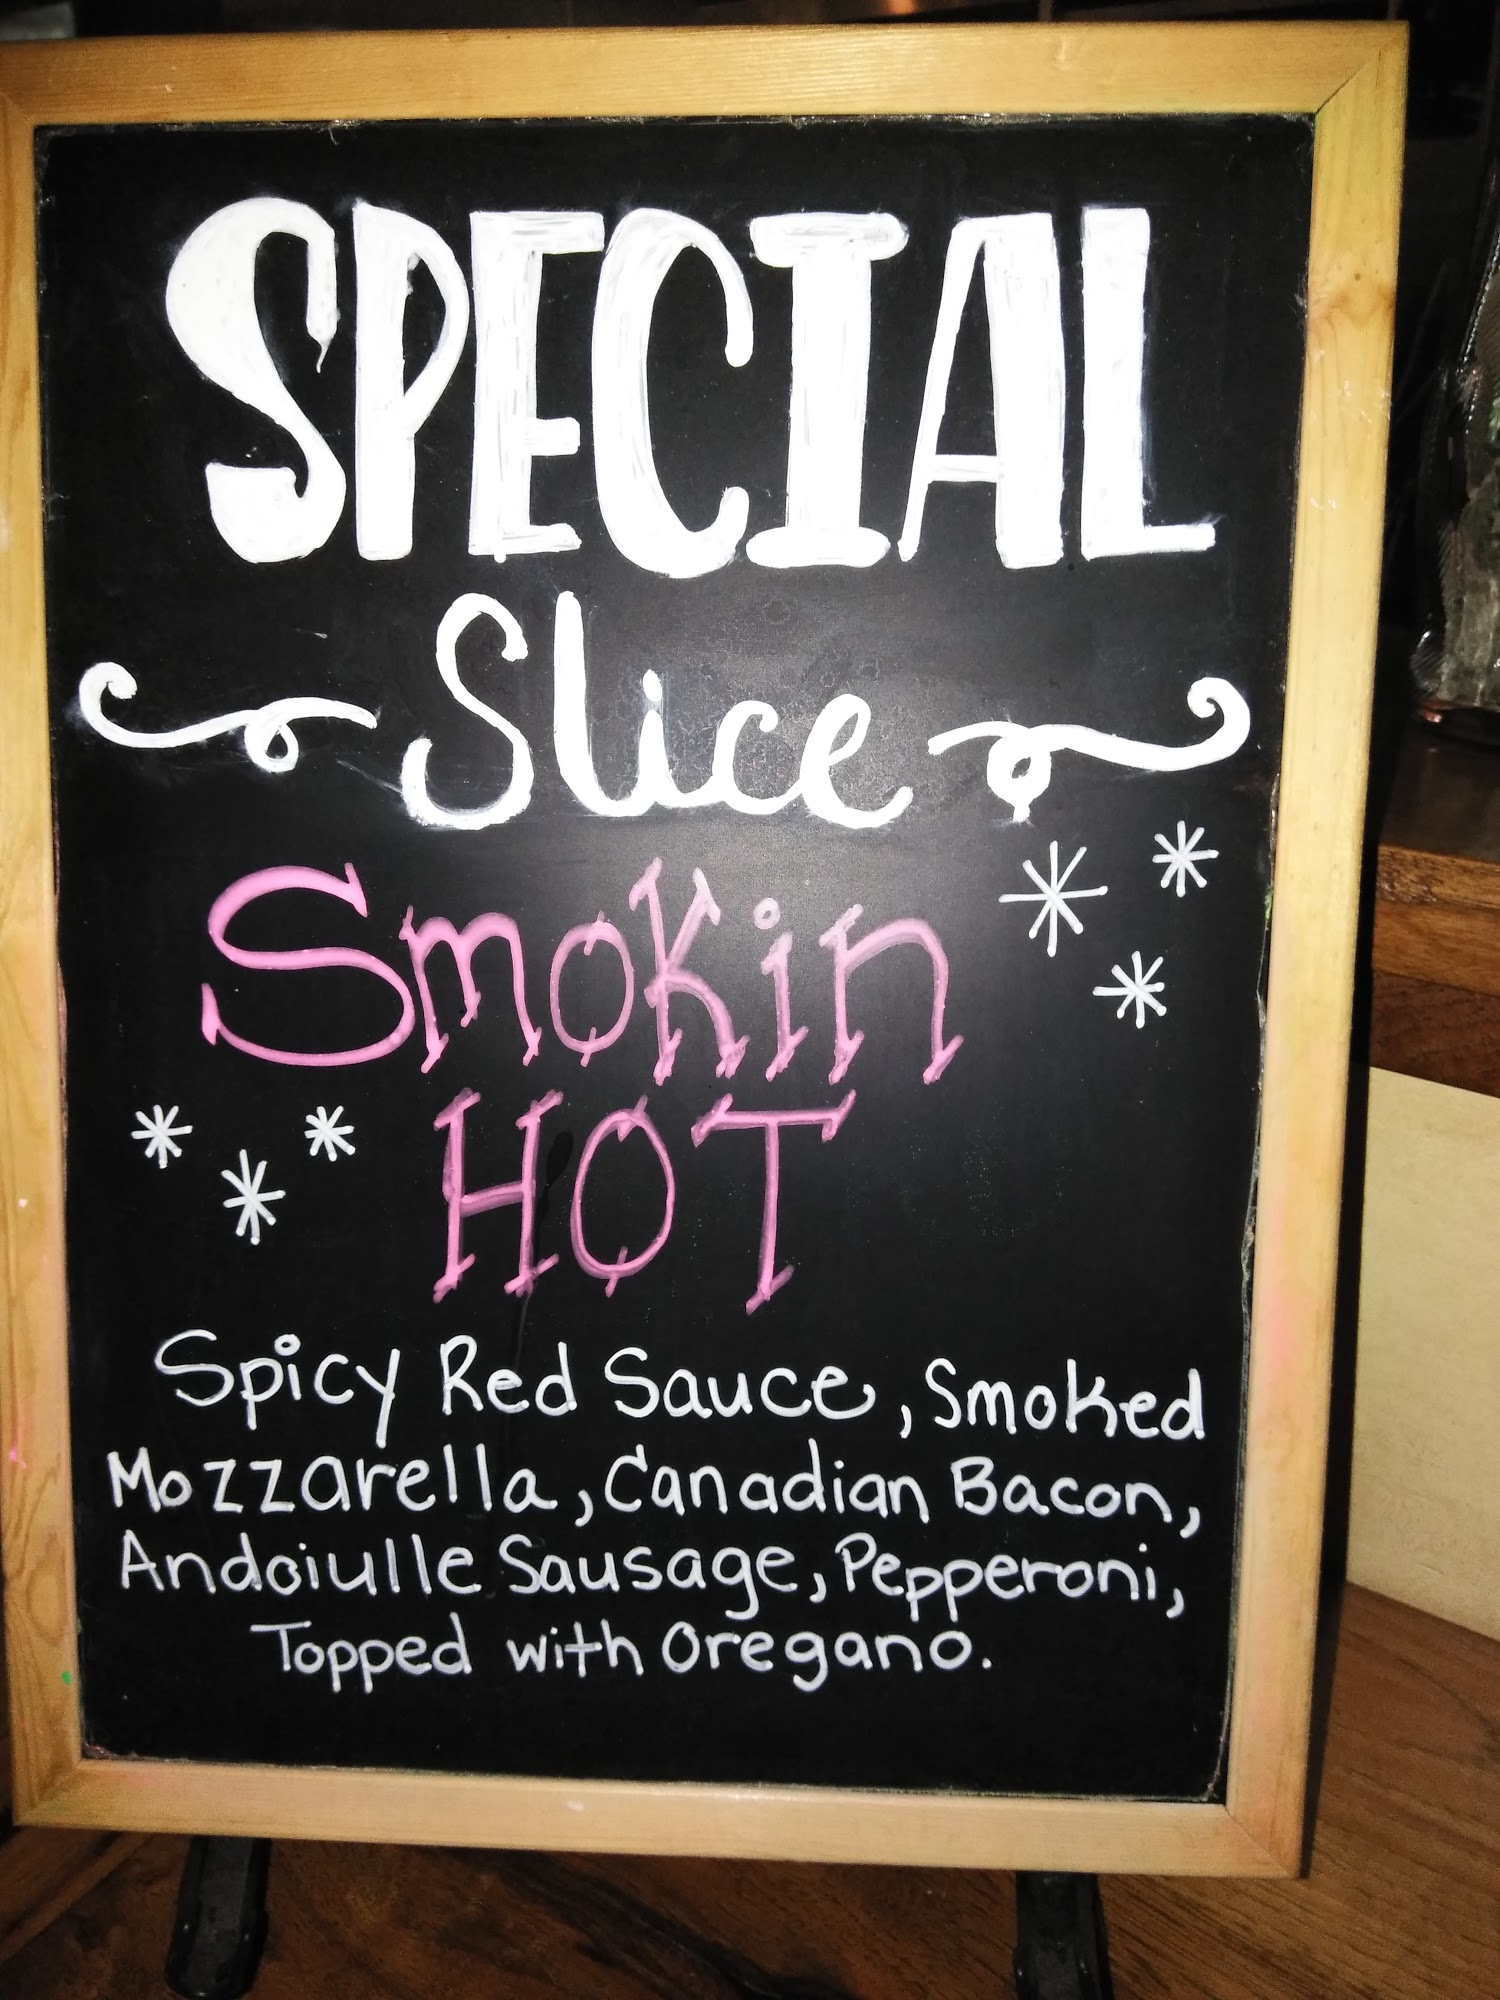 SPECIAL
Slice
Smokin
HOT
Spicy Red Sauce, Smoked
Mozzarella, Canadian Bacon,
Andoiulle Sausage, Pepperoni,
Topped with Oregano.